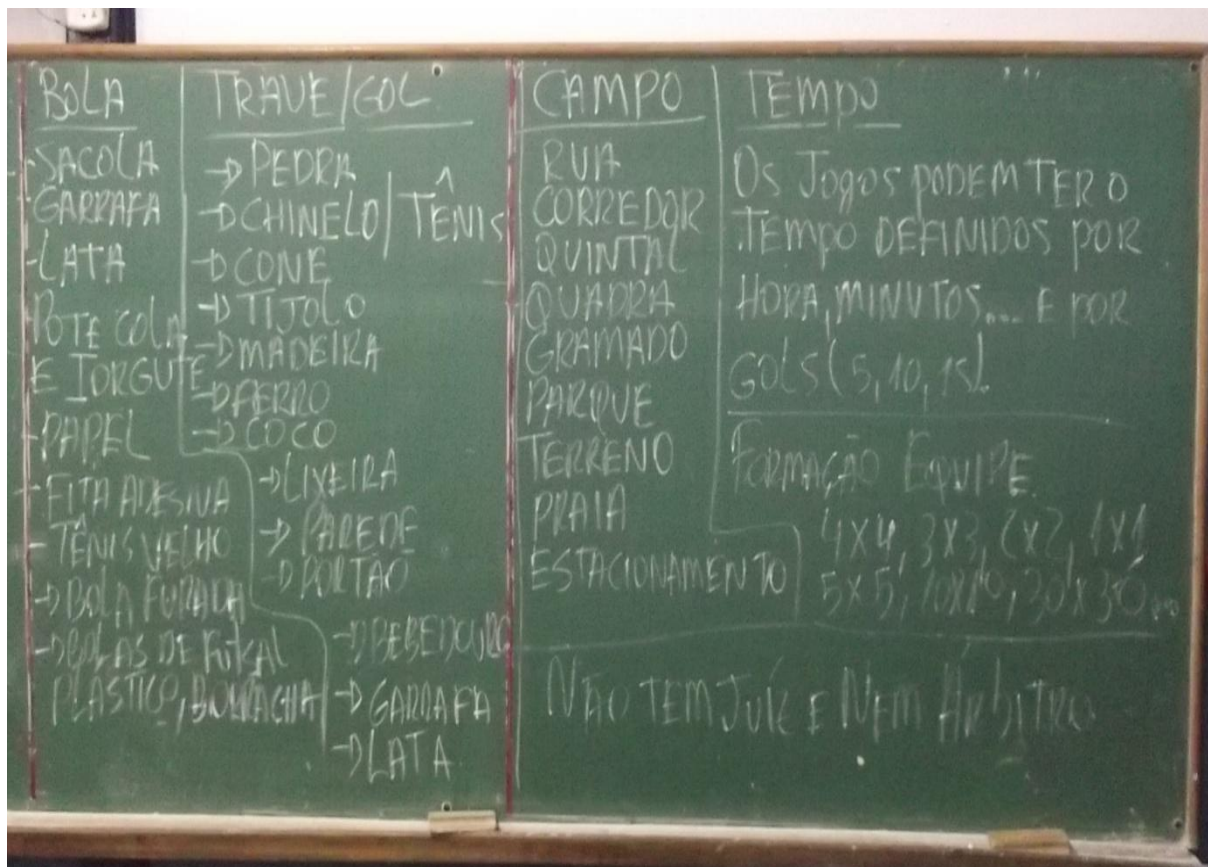 BOLA
- SACOLA
- GARRAFA
- LATA
POTE COLA
E IORGUTE
- PAPEL
- FITA ADESIVA
- TÊNIS VELHO
→ BOLA FURADA
→ BOLAS DE FUTSAL
PLASTICO, BORRACHA
TRAVE/GOL
→ PEDRA
→ CHINELO/TÊNIS
→ CONE
→ TIJOLO
→ MADEIRA
→ FERRO
→ COCO
→ LIXEIRA
→ PAREDE
→ PORTAO
→ BEBEDOURO
→ GARRAFA
→ LATA
CAMPO
RUA
CORREDOR
QUINTAL
QUADRA
GRAMADO
PARQUE
TERRENO
PRAIA
ESTACIONAMENTO
TEMPO
OS JOGOS PODEM TER O
TEMPO DEFINIDOS POR
HORA, MINUTOS... E POR
GOLS (5, 10, 15).
FORMAÇÃO EQUIPE
4X4, 3X3, 2X2, 1X1
5X5, 10X10, 30X30...
NÃO TEM JUÍZ E NEM ÁRBITRO